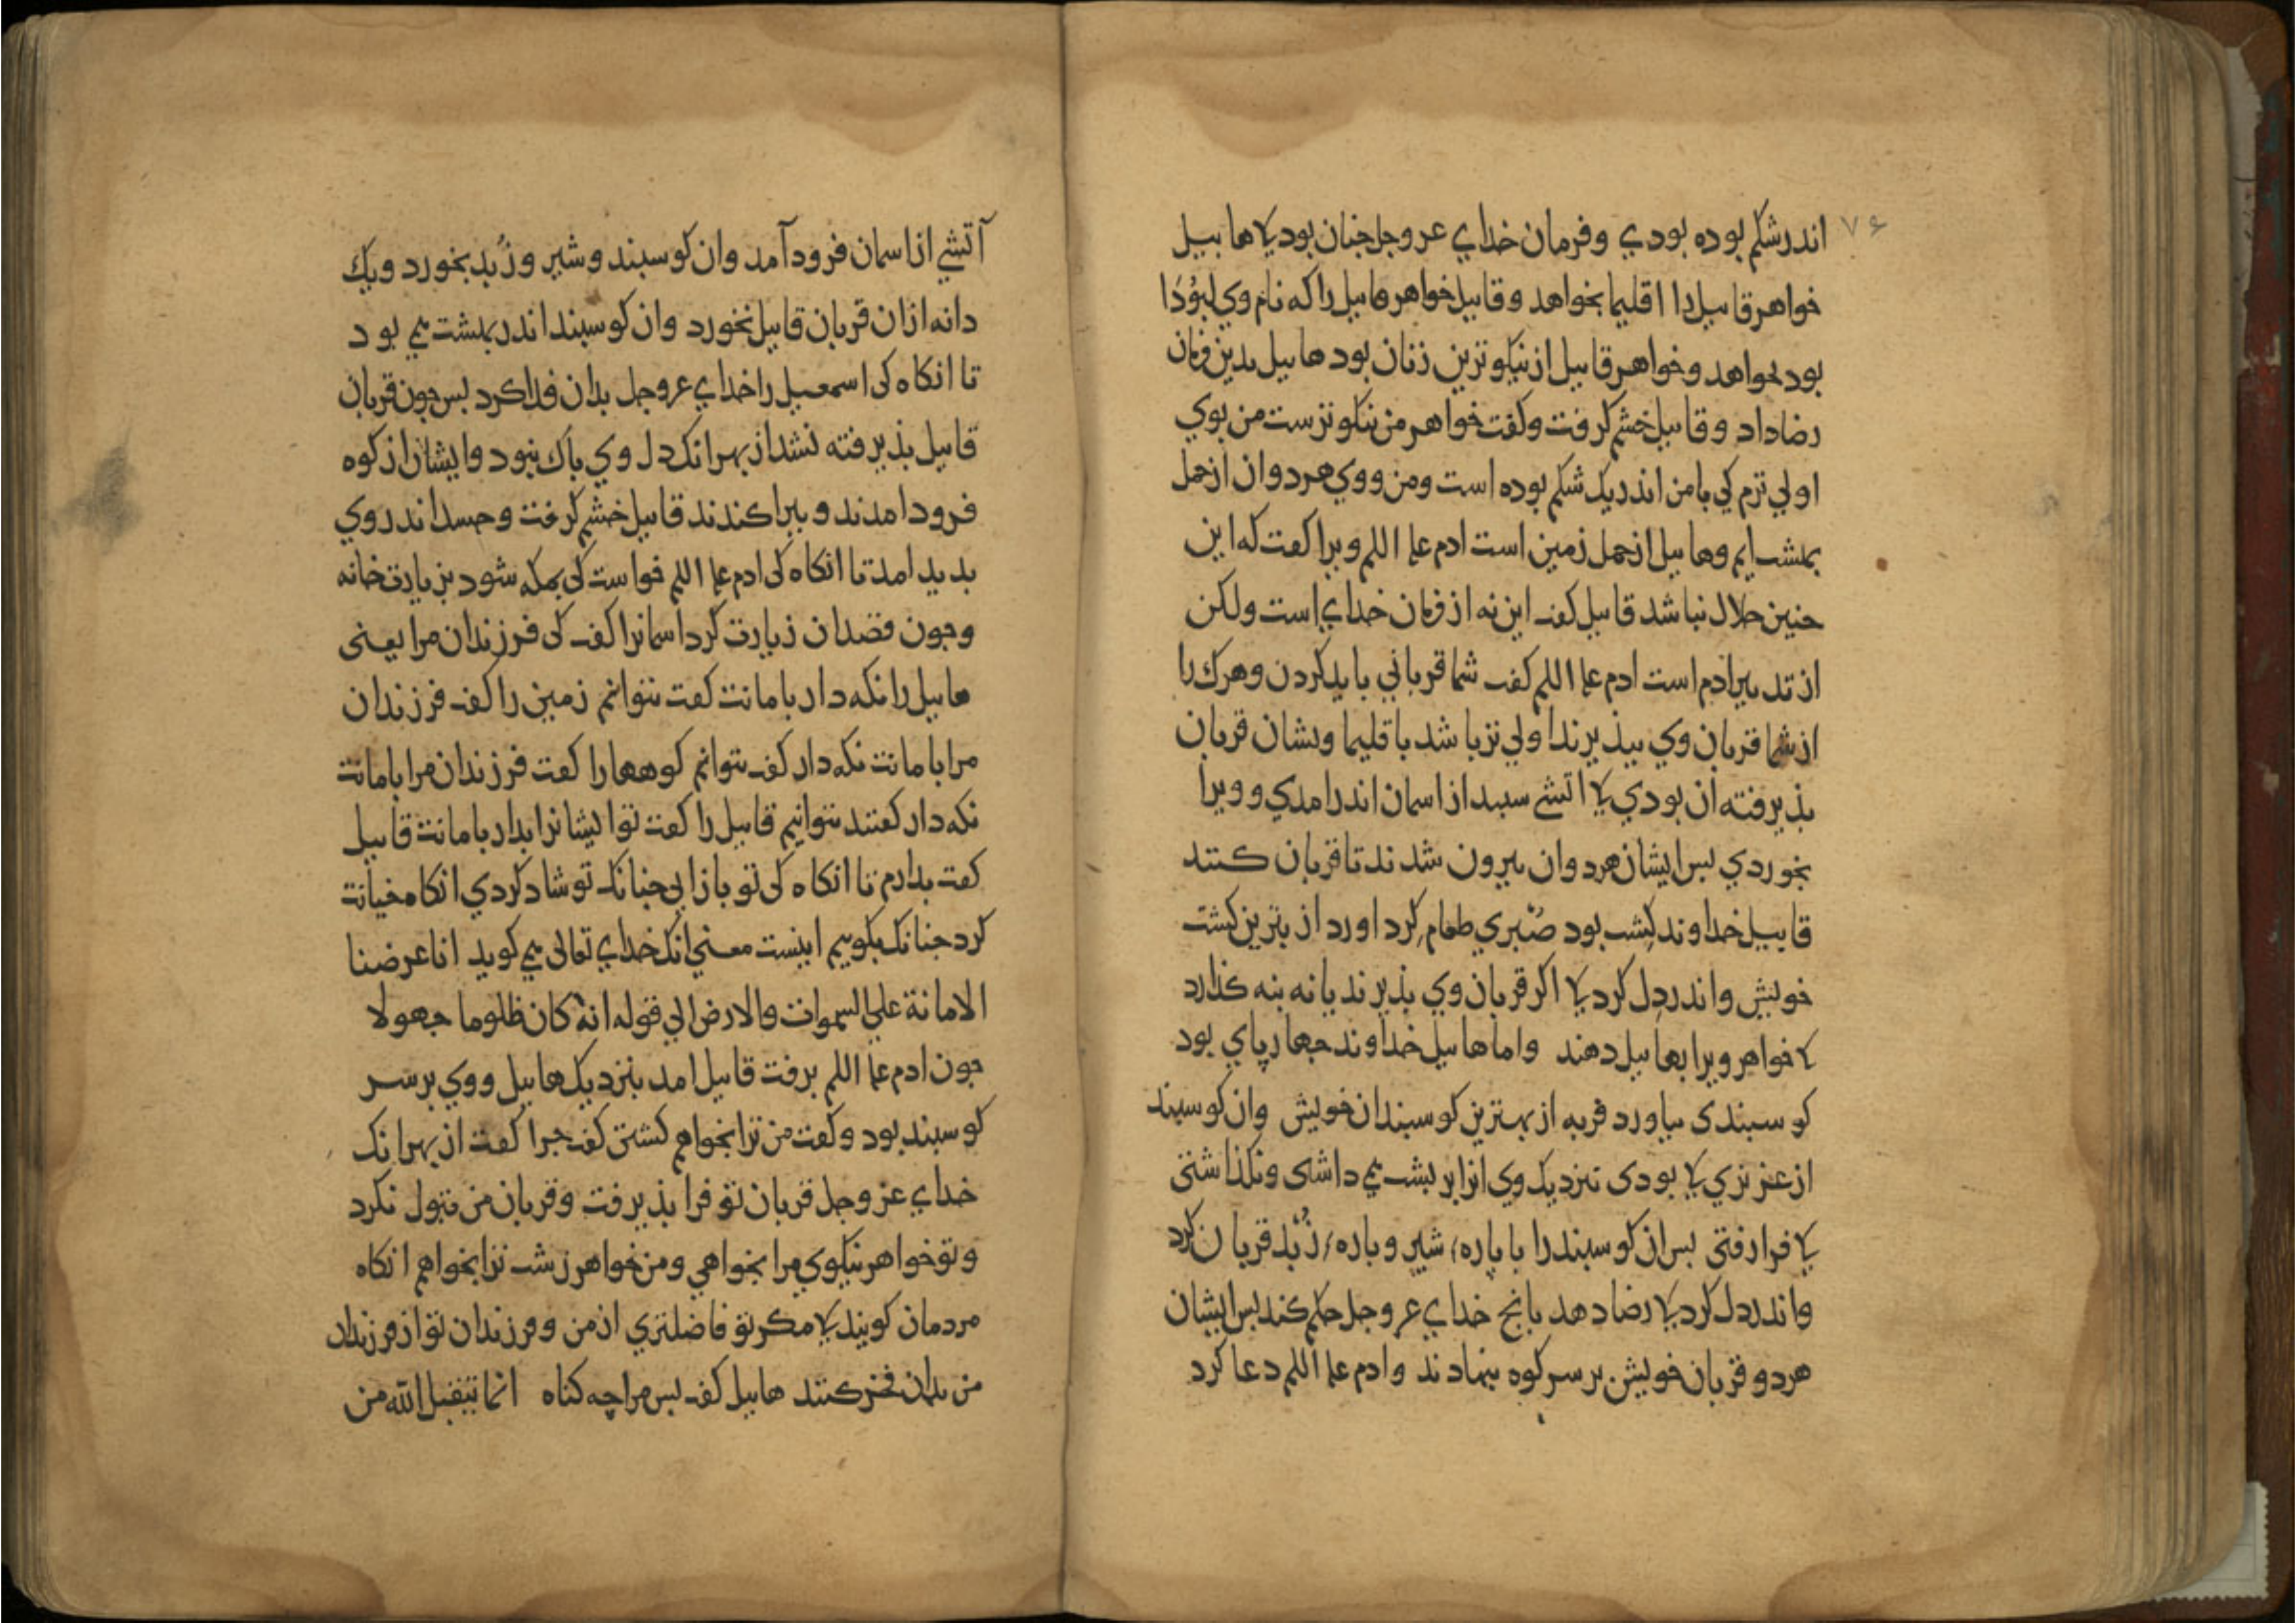 ۷۶
اندر شکم بوده بودي و فرمان خداي عز و جل جنان بود کی هابیل
خواهر قابیل را اقلیما بخواهد و قابیل خواهر هابیل را که نام وي لبوُدا
بود بخواهد و خواهر قابیل از نیکوترین زنان بود هابیل بدین فرمان
رضا داد و قابیل خشم کرفت و کفت خواهر من نیکوترست من بوي
اولي ترم کي با من اندر یک شکم بوده است و من و وي هردوان از حمل
بهشت ایم و هابیل از حمل زمین است ادم علیه السلم ویرا کفت که این
جنین حلال نباشد قابیل کفت این نه از فرمان خداي است ولکن
از تدبیر ادم است ادم علیه السلم کفت شما قرباني باید کردن و هرک را
از شما قربان وي بپذیرند اولي تر باشد باقلیما و نشان قربان
بذیرفته ان بودي کی اتشي سپید از اسمان اندر امدي و ویرا
بخوردي بس ایشان هردوان بیرون شدند تا قربان کنند
قابیل خداوند کِشت بود صُبري طعام کرد اورد از بترین کشت
خویش و اندر دل کرد کی اکر قربان وي بذیرند یا نه بنه کذارد
کی خواهر ویرا بهابیل دهند و اما هابیل خداوند جهارپاي بود
کوسبندی بیاورد فربه از بهترین کوسبندان خویش و ان کوسبند
از عزیزي کی بودی نزدیک وي انرا بر بشت مي داشتی و نکذاشتی
کی فرا رفتی بس ان کوسبند را با پاره شیر و پاره زُبد قربان کرد
و اندر دل کرد کی رضا دهد بانج خداي عز و جل حکم کند بس ایشان
هردو قربان خویش بر سر کوه بنهادند و ادم علیه السلم دعا کرد
آتشي از اسمان فرود آمد و ان کوسبند و شیر و زُبد بخورد و یک
دانه از ان قربان قابیل نخورد و ان کوسبند اندر بهشت مي بود
تا انکاه کی اسمعیل را خداي عز و جل بدان فدا کرد بس جون قربان
قابیل بذیرفته نشد از بهر انک دل وي باک نبود و ایشان از کوه
فرود امدند و ببراکندند قابیل خشم کرفت و حسد اندر وي
بدید امد تا انکاه کی ادم علیه السلم خواست کی بمکه شود بزیارت خانه
و جون قصد ان زیارت کرد اسمانرا کفت کی فرزندان مرا یعنی
هابیل را نکه دار بامانت کفت نتوانم زمین را کفت فرزندان
مرا بامانت نکه دار کفت نتوانم کوهها را کفت فرزندان مرا بامانت
نکه دار کفتند نتوانیم قابیل را کفت تو ایشانرا بدار بامانت قابیل
کفت بدارم تا انکاه کی تو باز ایي جنانک تو شاد کردي انکاه خیانت
کرد جنانک بکوییم اینست معني انک خداي تعالی مي کوید انا عرضنا
الامانة علي السموات والارض الي قوله انه کان ظلوما جهولا
جون ادم علیه السلم برفت قابیل امد بنزدیک هابیل و وي بر سر
کوسبند بود و کفت من ترا بخواهم کشتن کفت جرا کفت از بهر انک
خداي عز و جل قربان تو فرا بذیرفت و قربان من قبول نکرد
و تو خواهر نیکوي مرا بخواهي و من خواهر زشت ترا بخواهم انکاه
مردمان کویند کی مکر تو فاضلتري از من و فرزندان تو از فرزندان
من بدان فخر کنند هابیل کفت بس مرا چه کناه انما یتقبل الله من